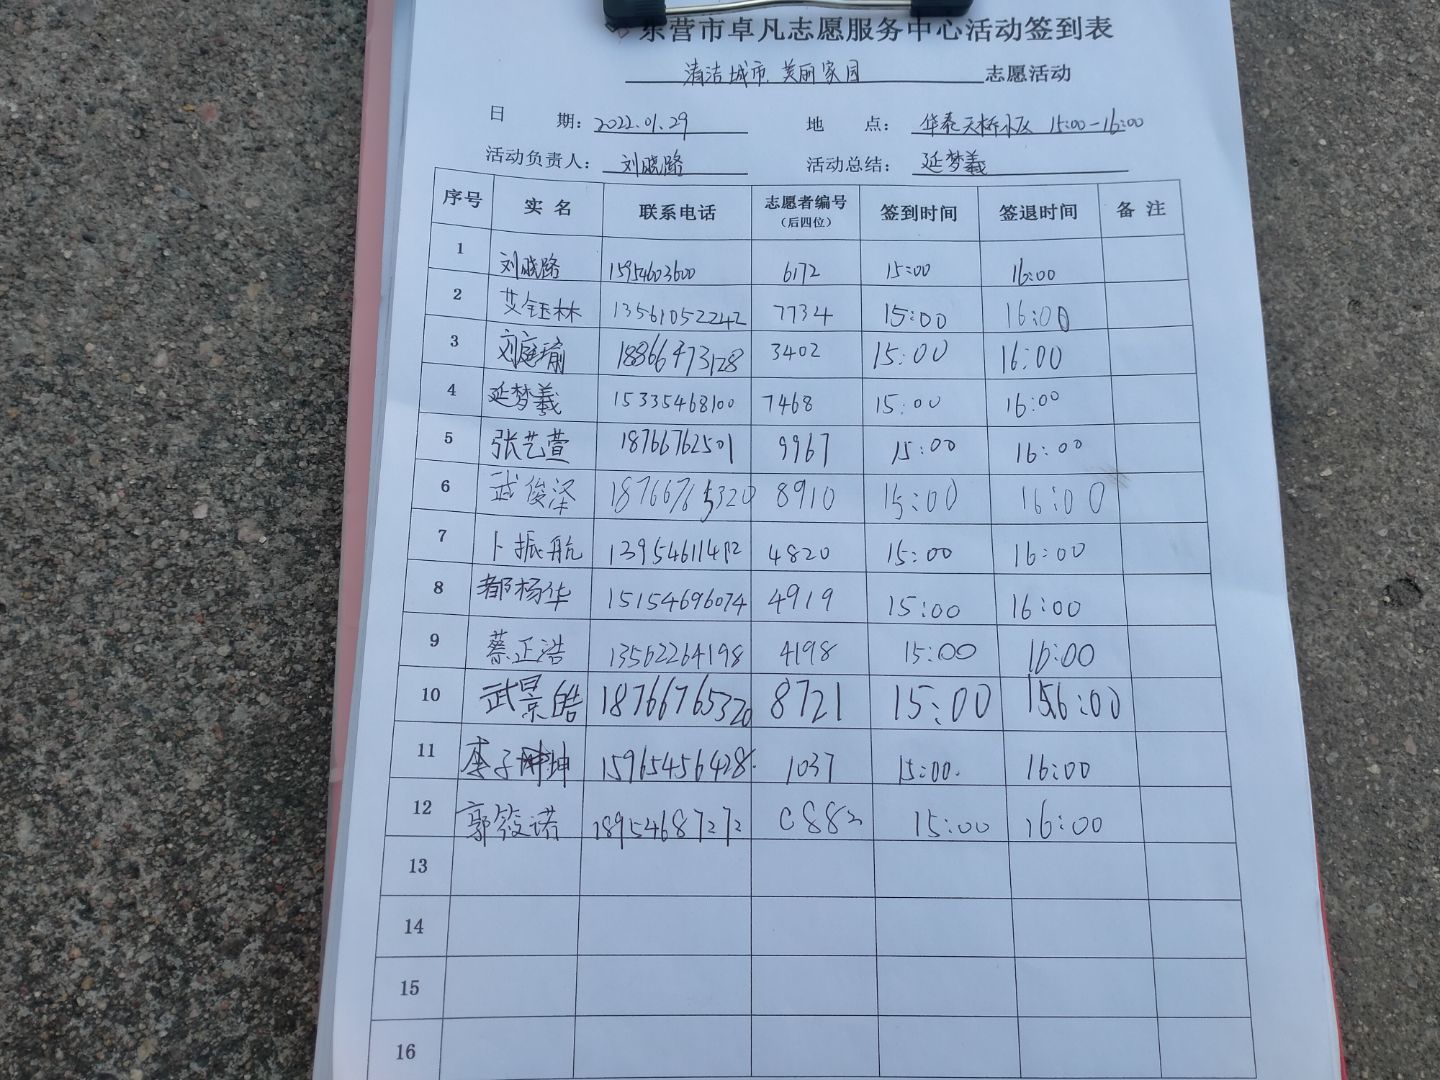 东营市卓凡志愿服务中心活动签到表
清洁城市.美丽家园 志愿活动
日 期：2022.01.29 地 点：华泰天桥小区 15:00-16:00
活动负责人：刘晓路 活动总结：延梦羲
序号 实 名 联系电话 志愿者编号（后四位） 签到时间 签退时间 备 注
1 刘晓路 15954603600 6172 15:00 16:00
2 艾钰林 13561052242 7734 15:00 16:00
3 刘庭瑜 18866473128 3402 15:00 16:00
4 延梦羲 15335468100 7468 15:00 16:00
5 张艺萱 18766762501 9967 15:00 16:00
6 武俊泽 18766765320 8910 15:00 16:00
7 卜振航 13954611412 4820 15:00 16:00
8 都杨华 15154696074 4919 15:00 16:00
9 蔡正浩 13562264198 4198 15:00 16:00
10 武景皓 18766765320 8721 15:00 156:00
11 李子坤 15965456428 1037 15:00. 16:00
12 郭筱诺 18954687272 C882 15:00 16:00
13
14
15
16